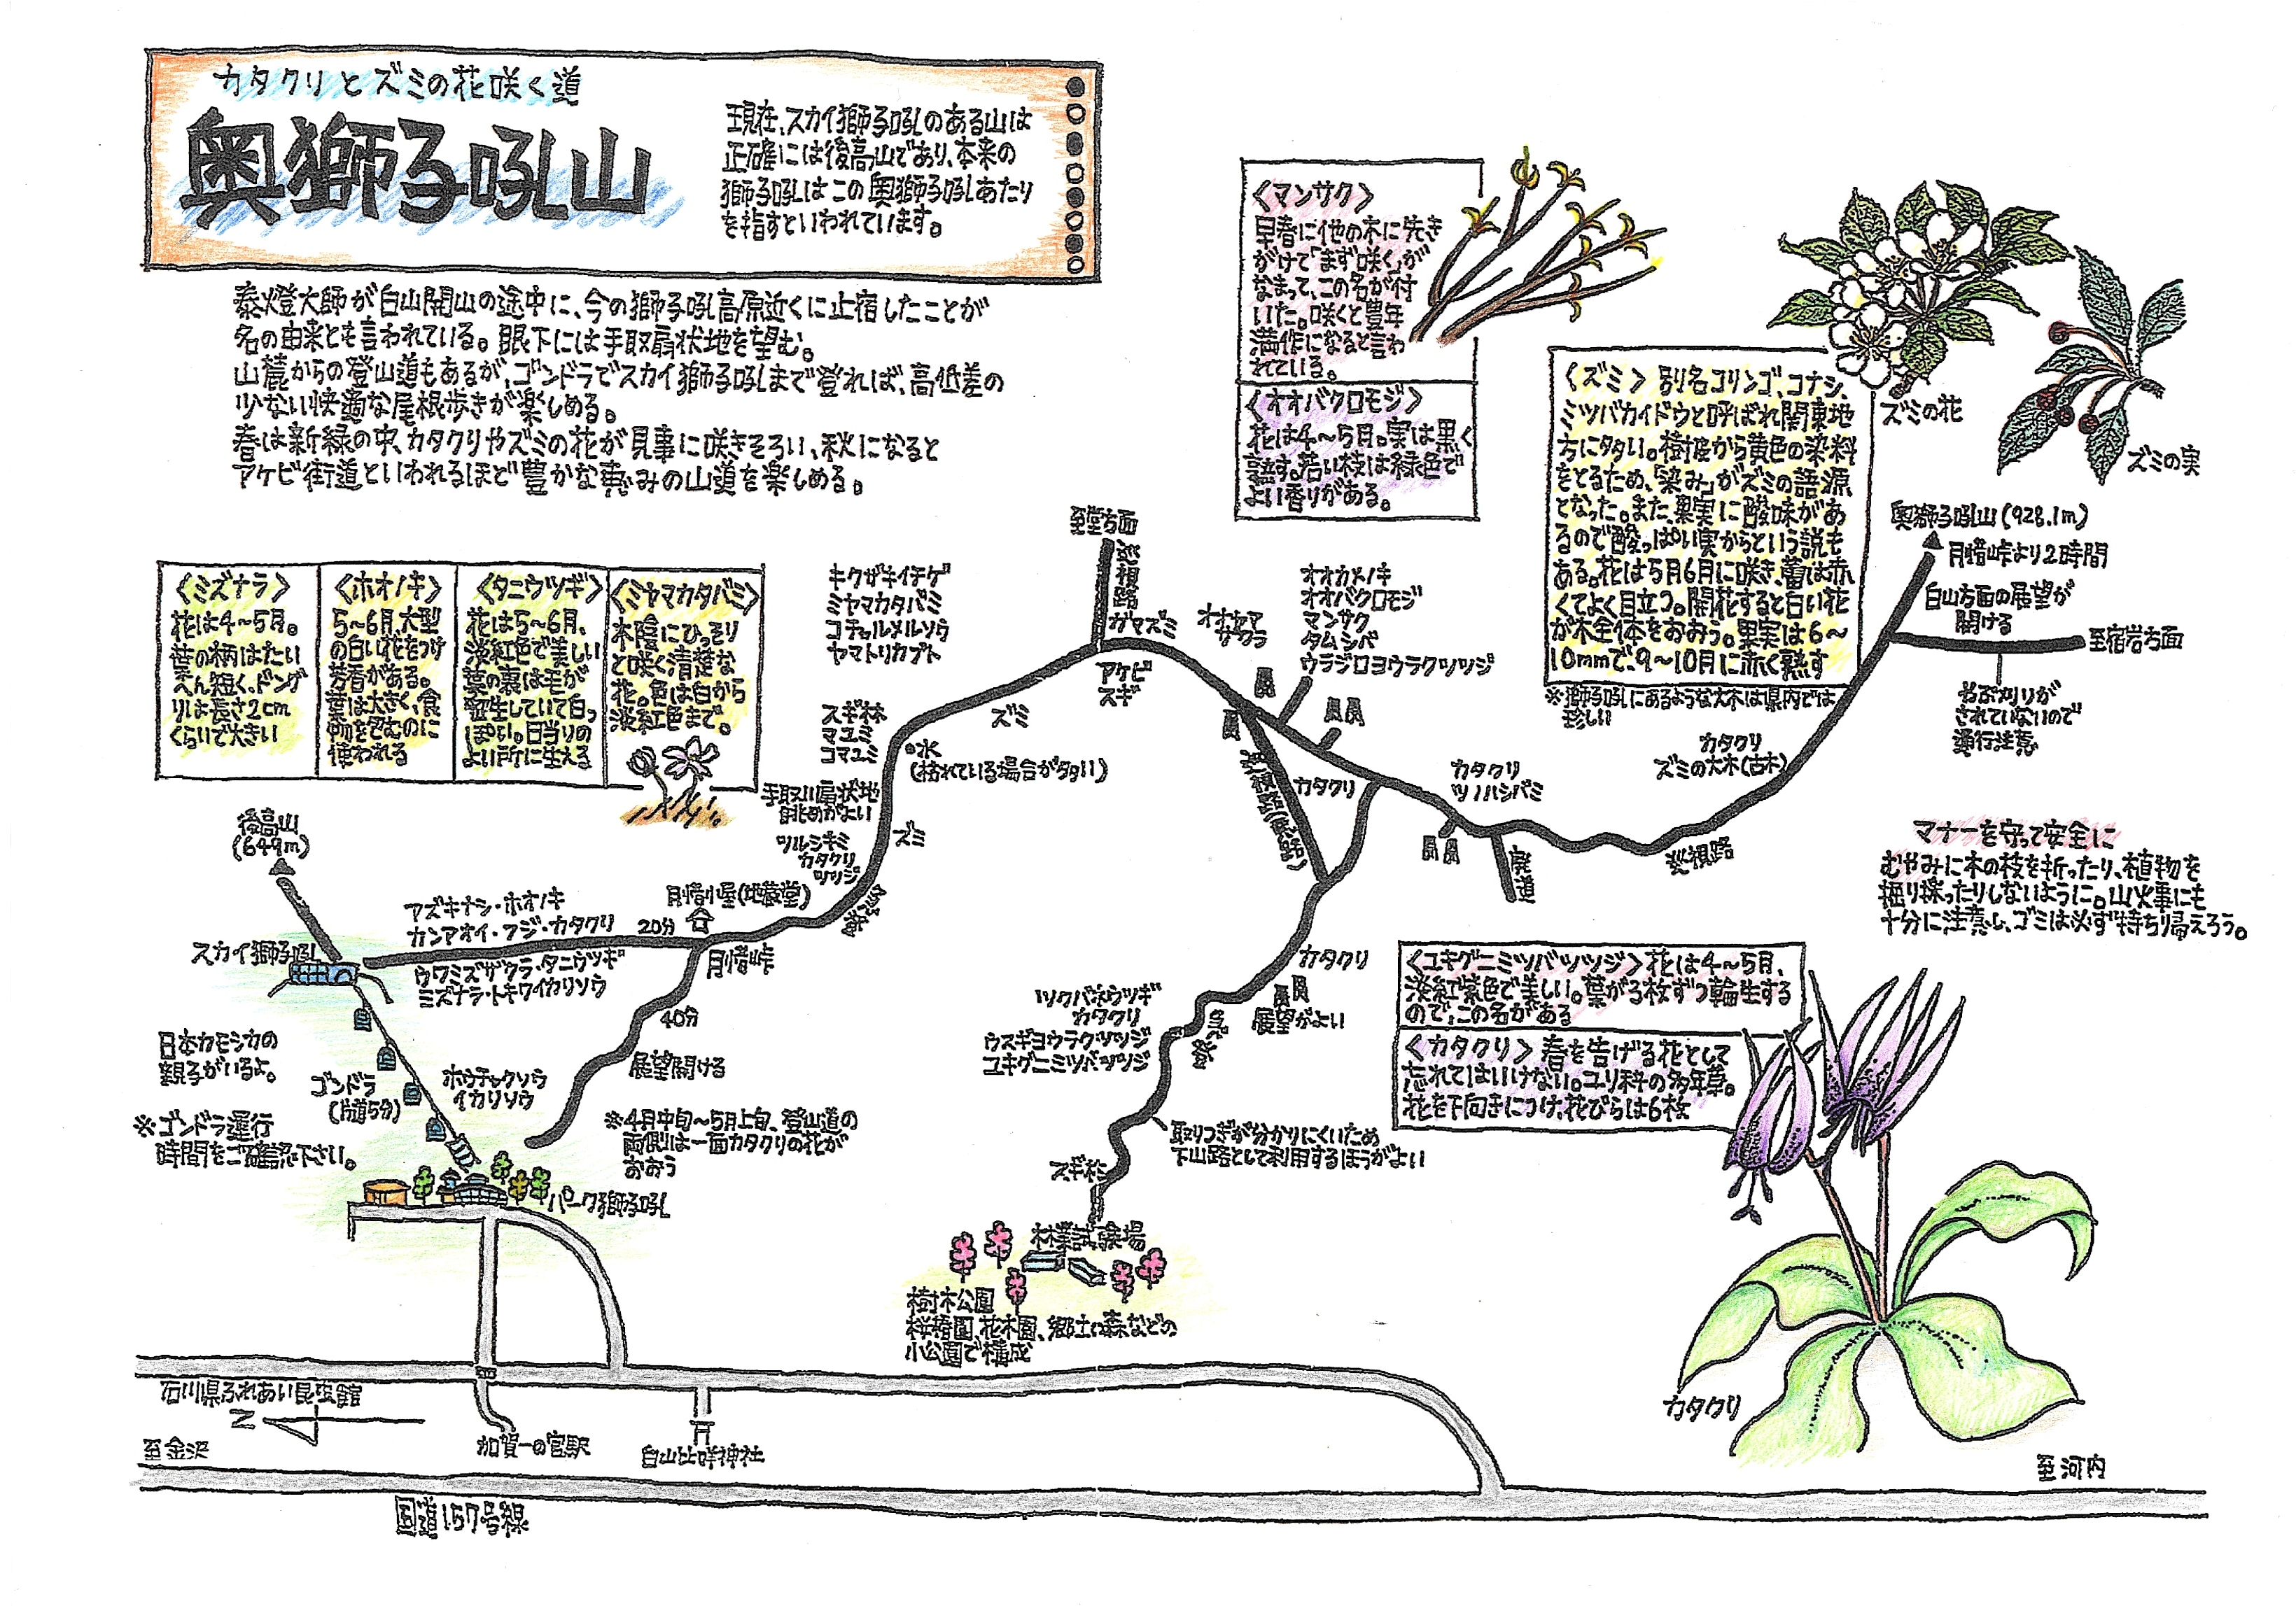 カタクリとズミの花咲く道
奥獅子吼山
現在、スカイ獅子吼のある山は
正確には後高山であり、本来の
獅子吼はこの奥獅子吼あたり
を指すといわれています。
泰燈大師が白山開山の途中に、今の獅子吼高原近くに止宿したことが
名の由来とも言われている。眼下には手取扇状地を望む。
山麓からの登山道もあるが、ゴンドラでスカイ獅子吼まで登れば、高低差の
少ない快適な尾根歩きが楽しめる。
春は新緑の中、カタクリやズミの花が見事に咲きそろい、秋になると
アケビ街道といわれるほど豊かな恵みの山道を楽しめる。
〈マンサク〉
早春に他の木に先き
がけて「まず咲く」が
なまって、この名が付
いた。咲くと豊年
満作になると言わ
れている。
〈オオバクロモジ〉
花は4〜5月。実は黒く
熟す。若い枝は緑色で
よい香りがある。
〈ズミ〉別名コリンゴ、コナシ、
ミツバカイドウと呼ばれ関東地
方に多い。樹皮から黄色の染料
をとるため、「染み」がズミの語源
となった。また、果実に酸味があ
るので酸っぱい実からという説も
ある。花は5月6月に咲き、蕾は赤
くてよく目立つ。開花すると白い花
が木全体をおおう。果実は6〜
10mmで、9〜10月に赤く熟す
※獅子吼にあるような大木は県内では
珍しい
ズミの花
ズミの実
〈ミズナラ〉
花は4〜5月。
葉の柄はたい
へん短く、ドング
リは長さ2cm
くらいで大きい
〈ホオノキ〉
5〜6月、大型
の白い花をつけ
芳香がある。
葉は大きく、食
物を包むのに
使われる
〈タニウツギ〉
花は5〜6月、
淡紅色で美しい
葉の裏は毛が
密生していて白っ
ぽい。日当りの
よい所に生える
〈ミヤマカタバミ〉
木陰にひっそり
と咲く清楚な
花。色は白から
淡紅色まで。
キクザキイチゲ
ミヤマカタバミ
コチャルメルソウ
ヤマトリカブト
至堂方面
巡視路
ガマズミ
アケビ
スギ
オオヤマ
ザクラ
オオカメノキ
オオバクロモジ
マンサク
タムシバ
ウラジロヨウラクツツジ
奥獅子吼山(928.1m)
月惜峠より2時間
白山方面の展望が
開ける
至宿岩方面
やぶ刈りが
されていないので
通行注意
スギ林
マユミ
コマユミ
ズミ
水
(枯れている場合が多い)
手取川扇状地
眺めがよい
ズミ
ツルシキミ
カタクリ
ツツジ
急登
カタクリ
カタクリ
ツノハシバミ
カタクリ
ズミの大木(古木)
廃道
巡視路
後高山
(649m)
アズキナシ・ホオノキ
カンアオイ・フジ・カタクリ
20分
月惜小屋(地蔵堂)
月惜峠
スカイ獅子吼
ウワミズザクラ・タニウツギ
ミズナラ・トキワイカリソウ
40分
展望開ける
日本カモシカの
親子がいるよ。
ゴンドラ
(片道5分)
ホウチャクソウ
イカリソウ
※ゴンドラ運行
時間をご確認下さい。
※4月中旬〜5月上旬、登山道の
両側は一面カタクリの花が
おおう
パーク獅子吼
カタクリ
展望がよい
ツクバネウツギ
カタクリ
ウスギヨウラクツツジ
ユキグニミツバツツジ
急登
取りつきが分かりにくいため
下山路として利用するほうがよい
スギ林
林業試験場
樹木公園
桜椿園、花木園、郷土の森などの
小公園で構成
マナーを守って安全に
むやみに木の枝を折ったり、植物を
掘り採ったりしないように。山火事にも
十分に注意し、ゴミは必ず持ち帰えろう。
〈ユキグニミツバツツジ〉花は4〜5月、
淡紅紫色で美しい。葉が3枚ずつ輪生する
ので、この名がある
〈カタクリ〉春を告げる花として
忘れてはいけない。ユリ科の多年草。
花を下向きにつけ、花びらは6枚
カタクリ
石川県ふれあい昆虫館
N
至金沢
加賀一の宮駅
白山比咩神社
至河内
国道157号線